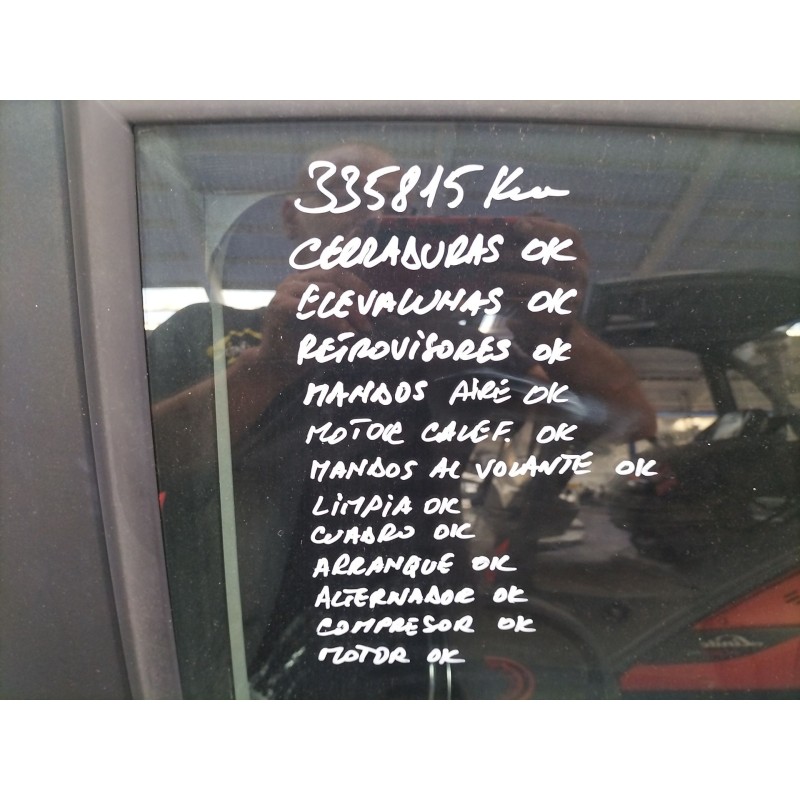 335815 Km
CERRADURAS OK
ELEVALUNAS OK
RETROVISORES OK
MANDOS AIRE OK
MOTOR CALEF. OK
MANDOS AL VOLANTE OK
LIMPIA OK
CUADRO OK
ARRANQUE OK
ALTERNADOR OK
COMPRESOR OK
MOTOR OK